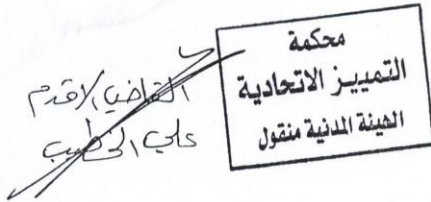 محكمة
التمييز الاتحادية
الهيئة المدنية منقول
القاضي الاقدم
علي الخطيب